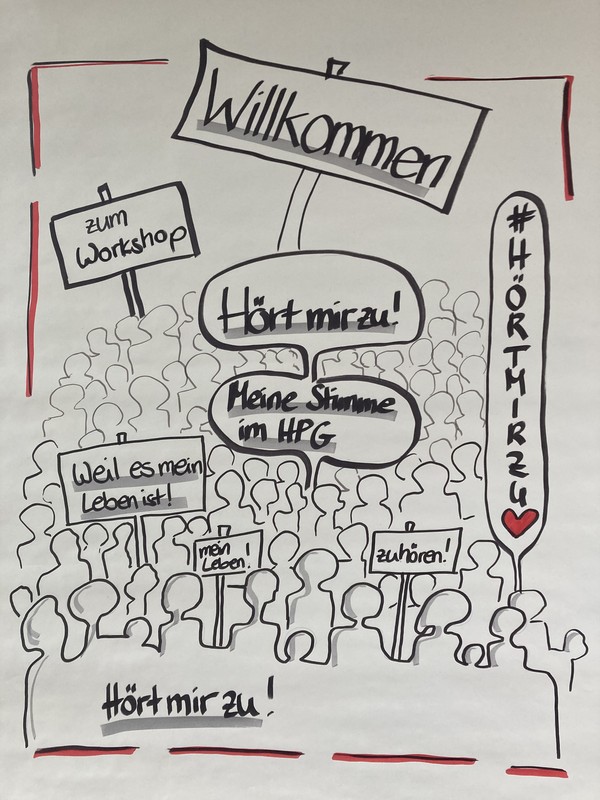 Willkommen
zum
Workshop
#HÖRTMIRZU
Hört mir zu!
Meine Stimme
im HPG
Weil es mein
Leben ist!
mein
Leben!
zuhören!
Hört mir zu!